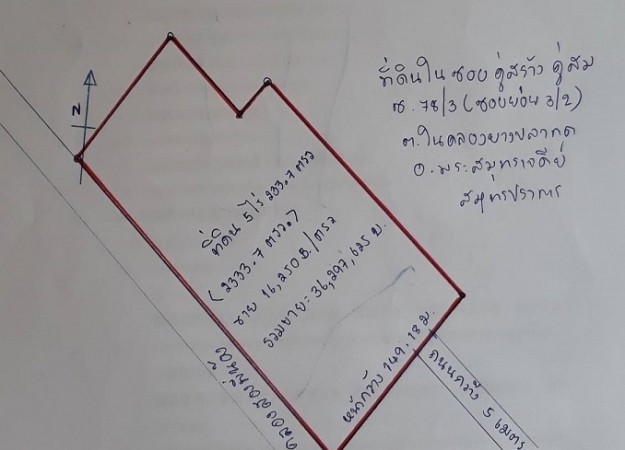 ที่ดินใน ซอย คู่สร้าง คู่สม
ซ. 78/3 (ซอยย่อย 3/2)
ต. ในคลองบางปลากด
อ. พระสมุทรเจดีย์
สมุทรปราการ
N
ที่ดิน 5 ไร่ 233.7 ตรว
(2333.7 ตรว.)
ขาย 16,250 B./ตรว
รวมขาย = 36,297,625 บ.
หน้ากว้าง 149.18 ม.
ถนนกว้าง 5 เมตร